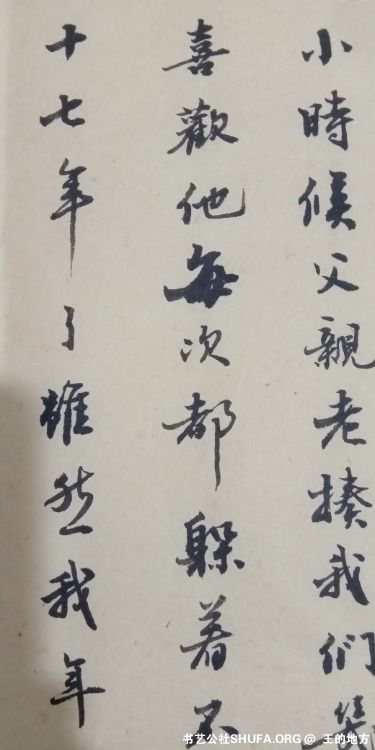 小時候父親老揍我們
喜歡他每次都躲着不
十七年了雖然我年
书艺公社SHUFA.ORG @ 王的地方